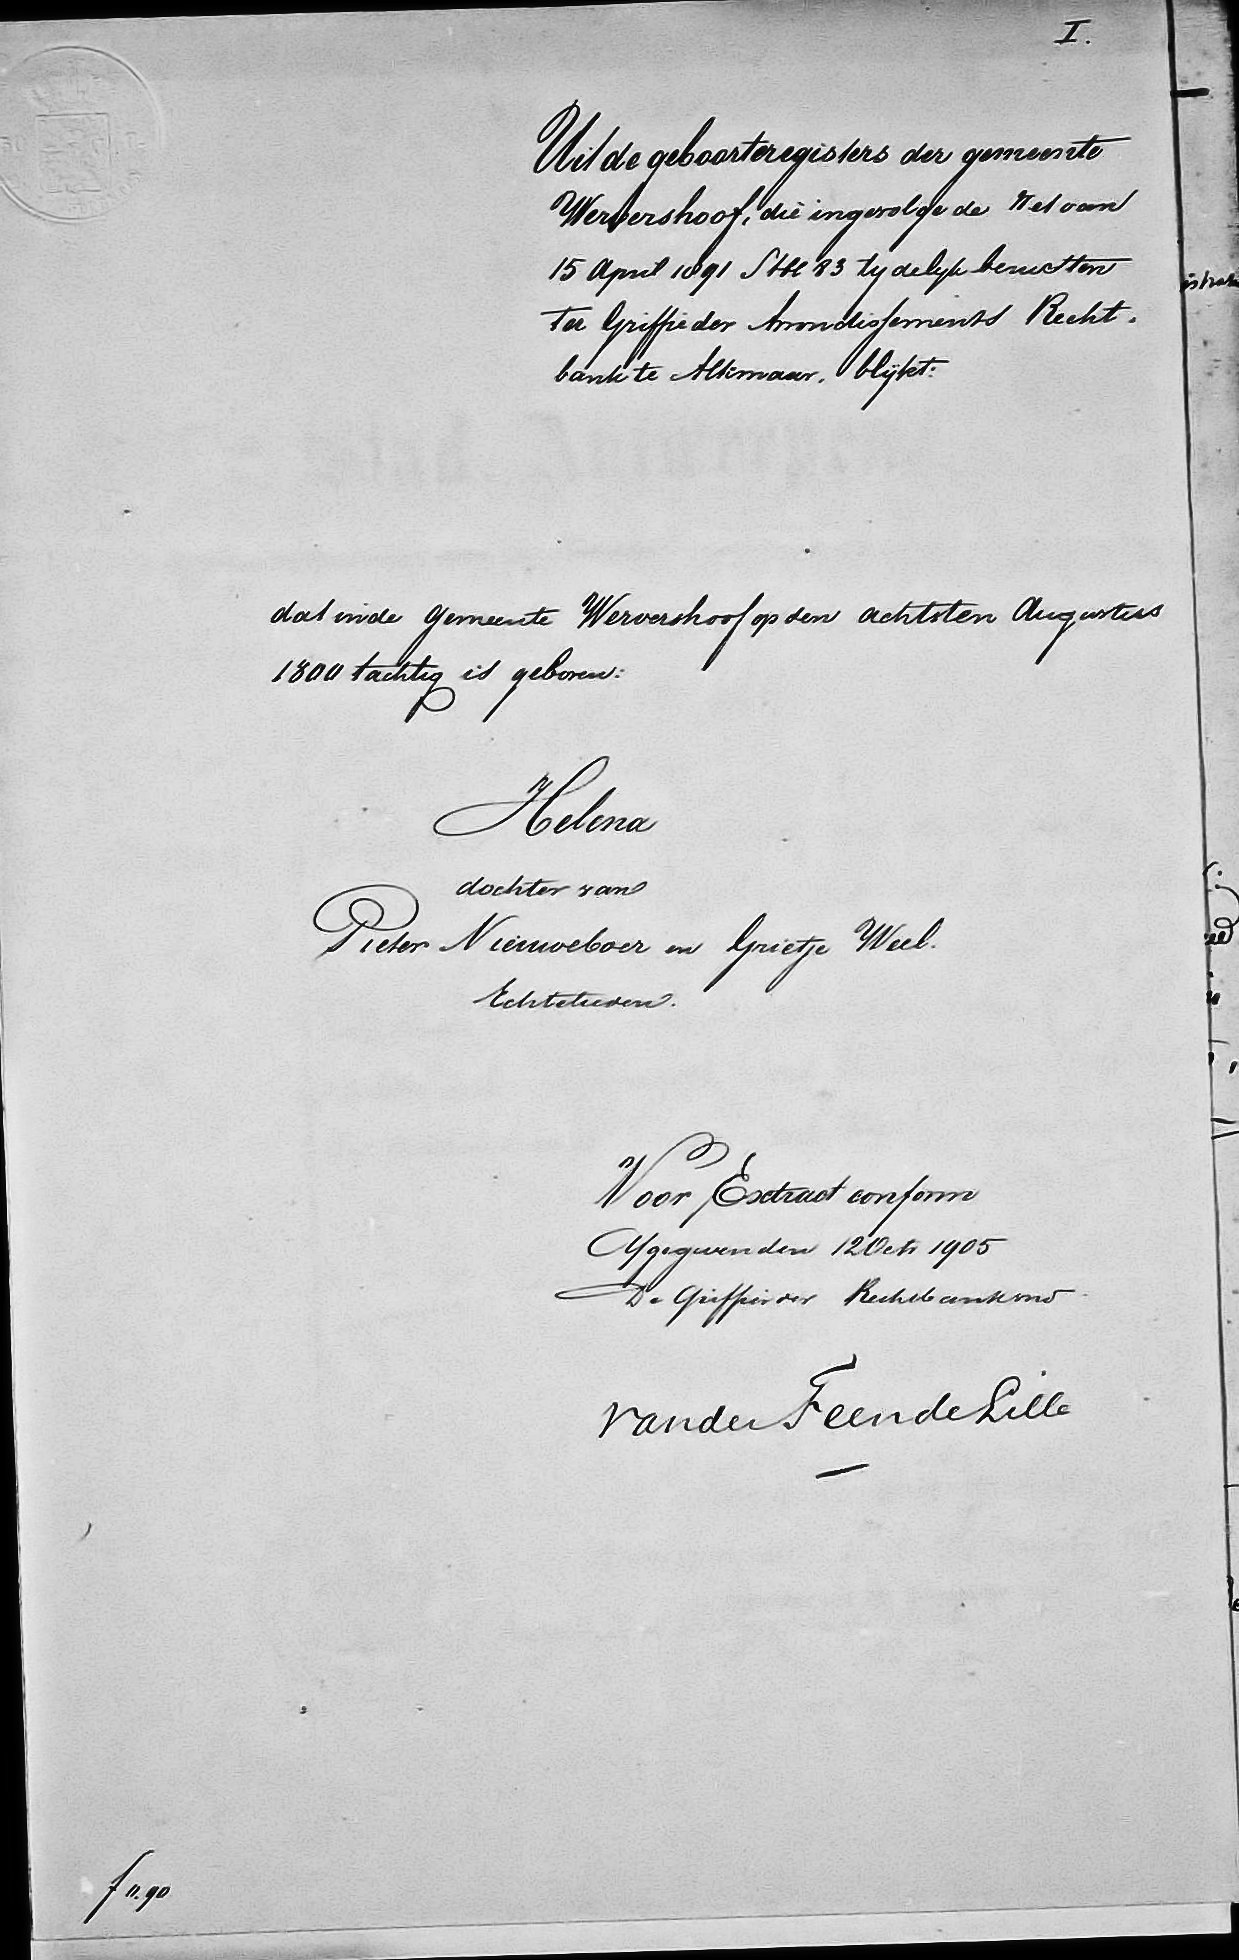 I.
Uit de geboorteregisters der gemeente
Wervershoof, die ingevolge de Wet van
15 April 1891 Stbl 83 tydelijk berustten
ter Griffie der Arrondissements Recht-
bank te Alkmaar, blijkt:
dat in de gemeente Wervershoof op den achtsten Augustus
1800 tachtig is geboren:
Helena
dochter van
Pieter Nieuweboer en Grietje Weel.
Echtelieden.
Voor Extract conform
Afgegeven den 12 Oct 1905
De Griffier der Rechtbank vnd
van der Feen de Lille
f 0.90